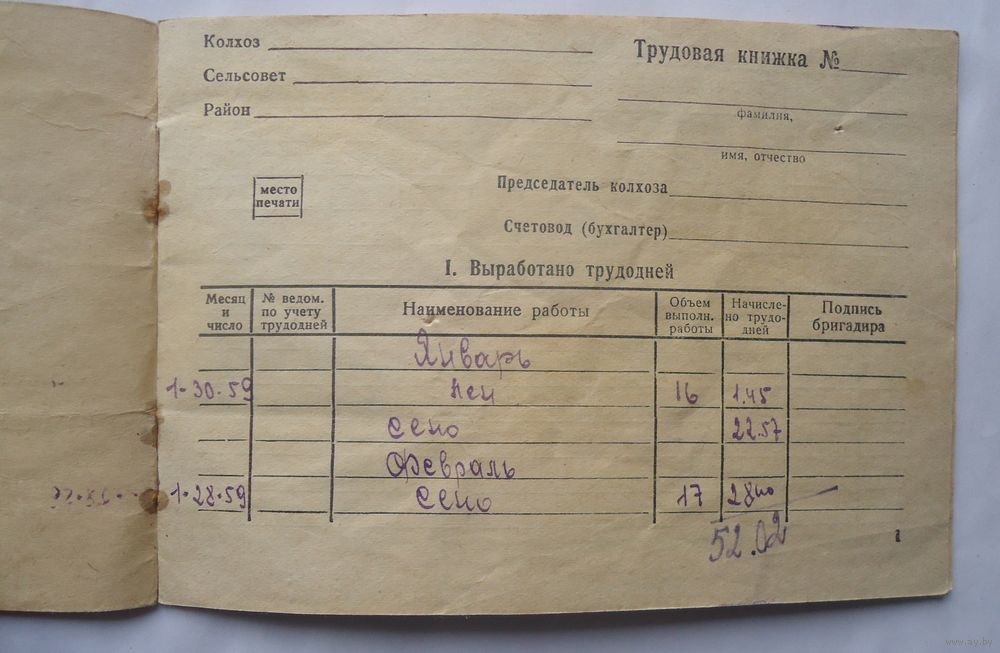 Колхоз
Сельсовет
Район
Трудовая книжка №
фамилия,
имя, отчество
Председатель колхоза
Счетовод (бухгалтер)
место
печати
I. Выработано трудодней
Месяц и число № ведом. по учету трудодней Наименование работы Объем выполн. работы Начисле-но трудо-дней Подпись бригадира
Январь
1-30.59 16 1.45
сено 22.57
Февраль
1-28.59 сено 17
52.02
1
www.ay.by